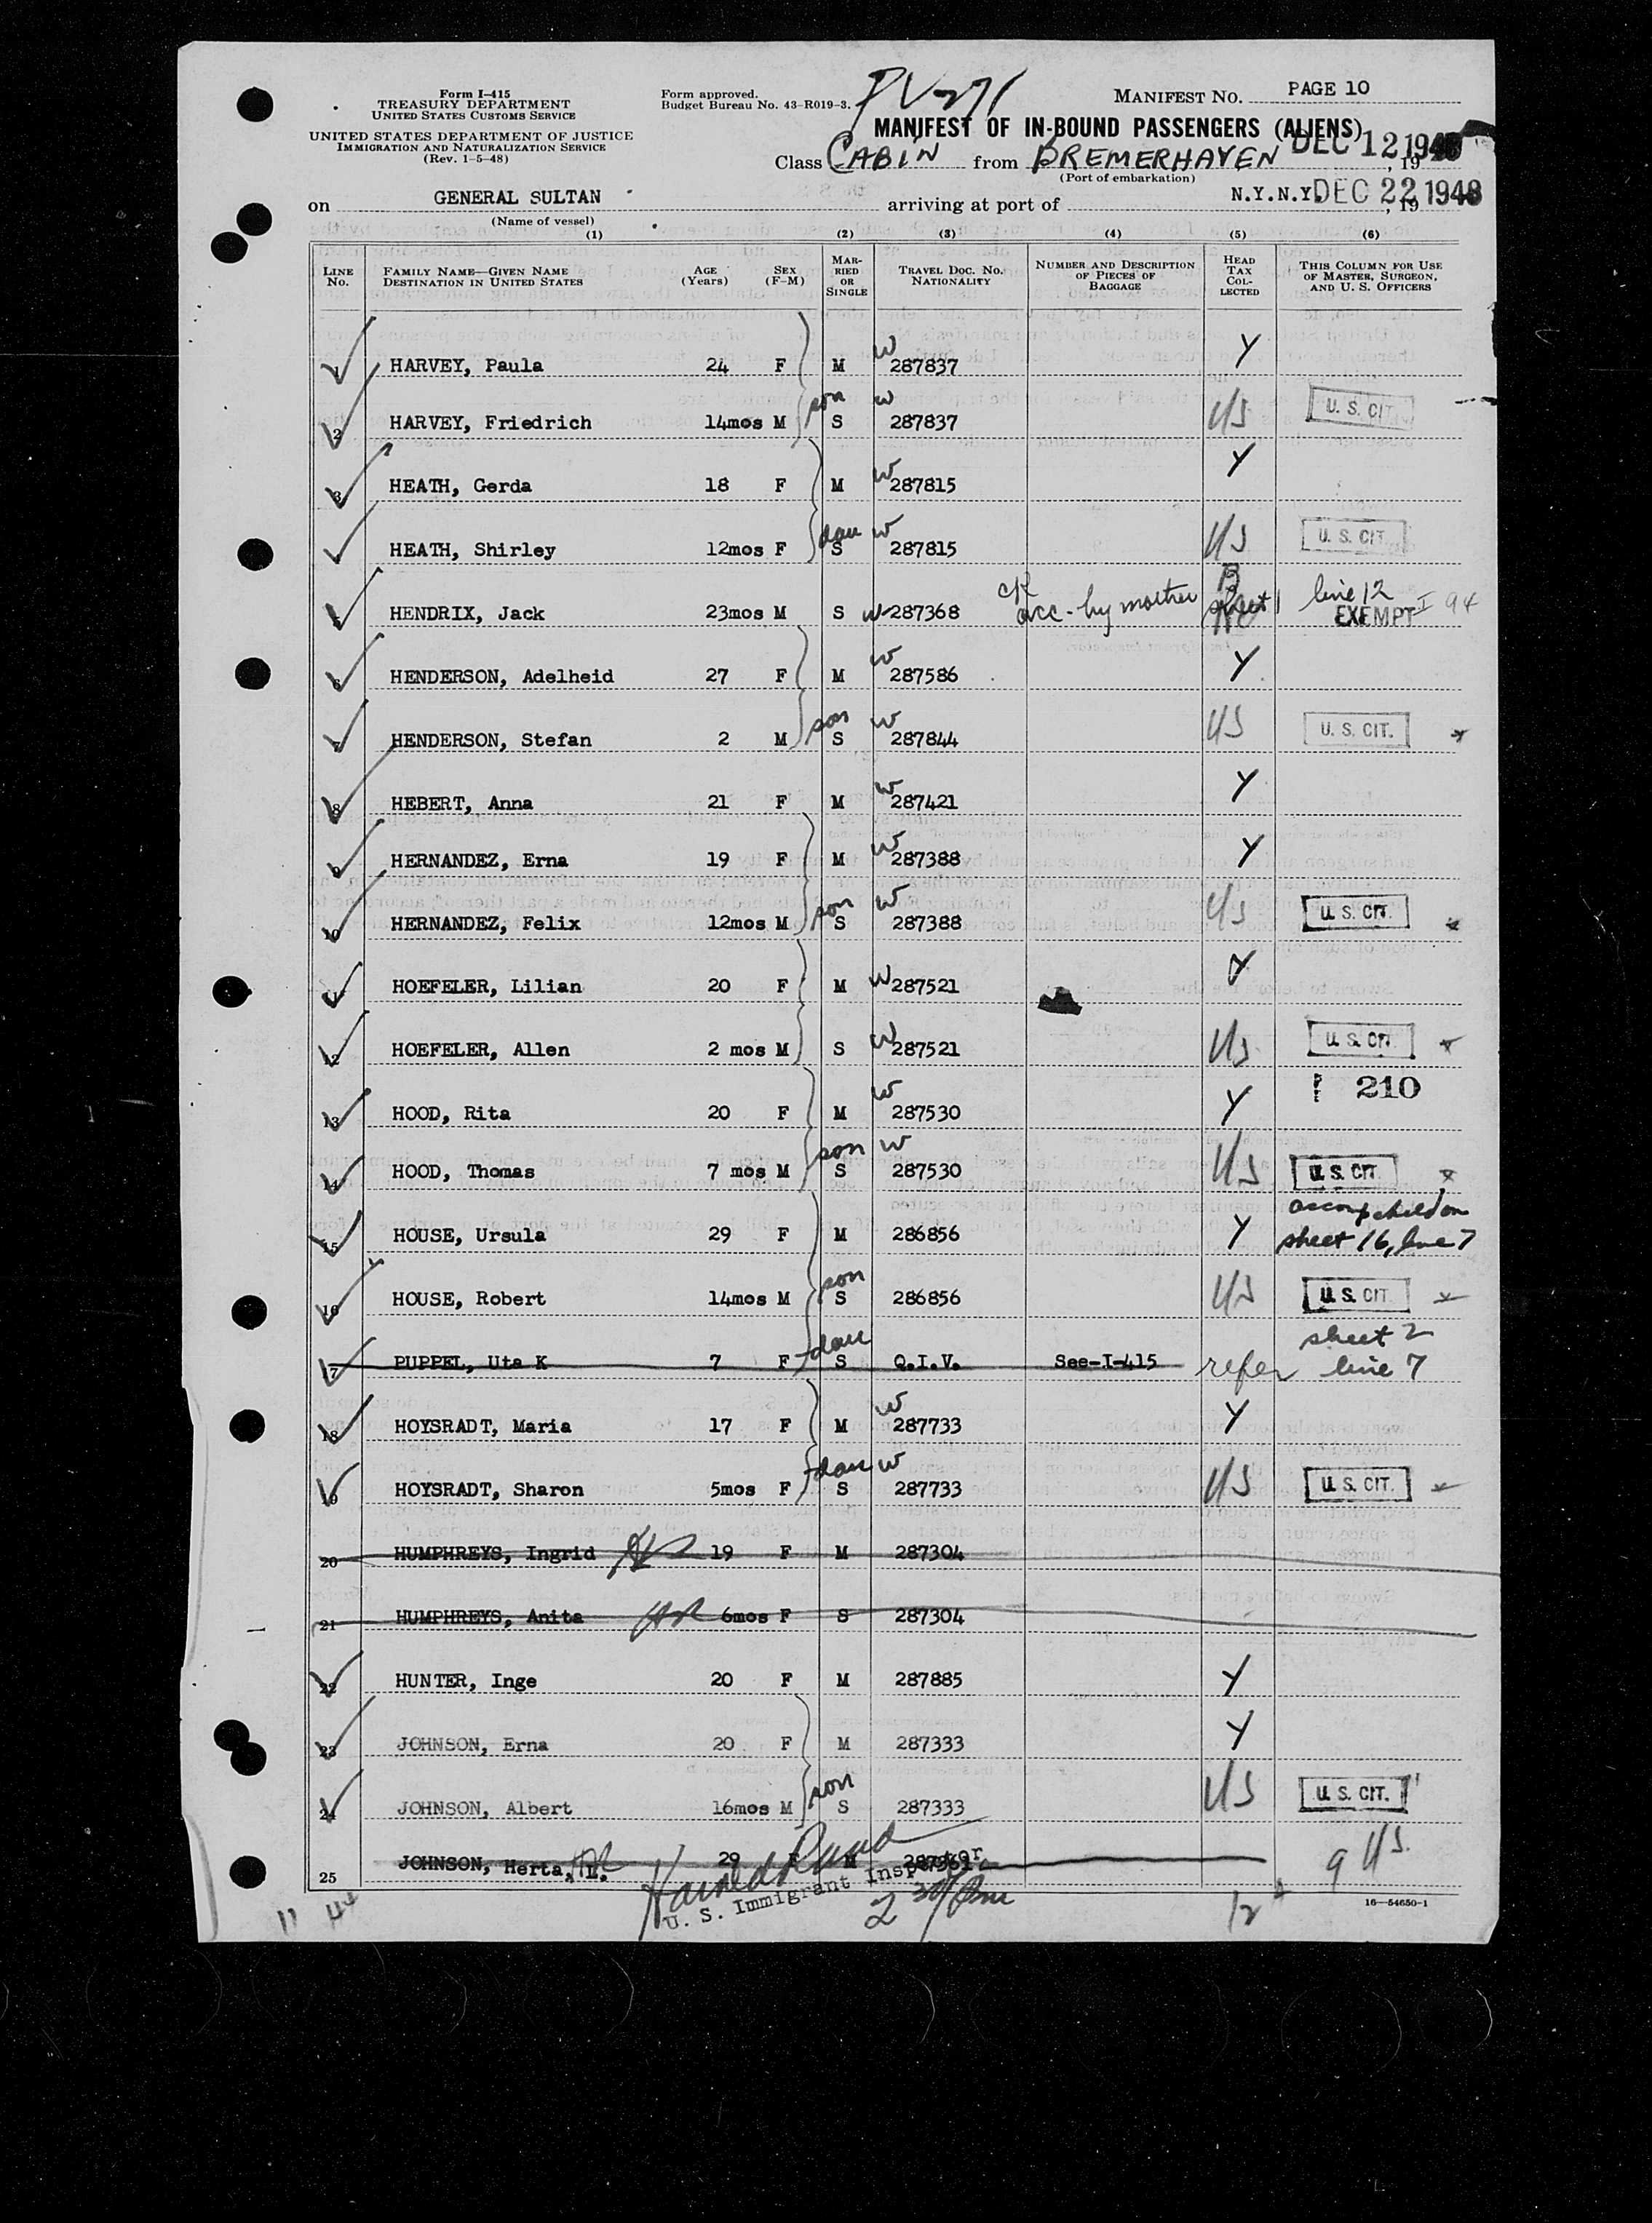 Form I-415
TREASURY DEPARTMENT
UNITED STATES CUSTOMS SERVICE
UNITED STATES DEPARTMENT OF JUSTICE
IMMIGRATION AND NATURALIZATION SERVICE
(Rev. 1-5-48)
Form approved.
Budget Bureau No. 43-R019-3.
MANIFEST NO. PAGE 10
MANIFEST OF IN-BOUND PASSENGERS (ALIENS)
Class CABIN from BREMERHAVEN DEC 12 1948, 19
(Port of embarkation)
on GENERAL SULTAN arriving at port of N.Y.N.Y. DEC 22 1948, 19
(Name of vessel)
(1) (2) (3) (4) (5) (6)
LINE NO. FAMILY NAME—GIVEN NAME DESTINATION IN UNITED STATES AGE (YEARS) SEX (F-M) MARRIED OR SINGLE TRAVEL DOC. NO. NATIONALITY NUMBER AND DESCRIPTION OF PIECES OF BAGGAGE HEAD TAX COLLECTED THIS COLUMN FOR USE OF MASTER, SURGEON, AND U. S. OFFICERS
1 HARVEY, Paula 24 F M W 287837 Y
2 HARVEY, Friedrich 14mos M son S W 287837 US U. S. CIT.
3 HEATH, Gerda 18 F M W 287815 Y
4 HEATH, Shirley 12mos F dau S W 287815 US U. S. CIT.
5 HENDRIX, Jack 23mos M S W-287368 ck acc. by mother sheet 1 line 12 EXEMPT I 94
6 HENDERSON, Adelheid 27 F M W 287586 Y
7 HENDERSON, Stefan 2 M son S W 287844 US U. S. CIT.
8 HEBERT, Anna 21 F M W 287421 Y
9 HERNANDEZ, Erna 19 F M W 287388 Y
10 HERNANDEZ, Felix 12mos M son S W 287388 US U. S. CIT.
11 HOEFELER, Lilian 20 F M W 287521 Y
12 HOEFELER, Allen 2 mos M S W 287521 US U. S. CIT.
210
13 HOOD, Rita 20 F M W 287530 Y
14 HOOD, Thomas 7 mos M son S W 287530 US U. S. CIT.
15 HOUSE, Ursula 29 F M 286856 Y accomp child on sheet 16, line 7
16 HOUSE, Robert 14mos M son S 286856 US U. S. CIT.
17 PUPPEL, Uta K 7 F dau S Q.I.V. See-I-415 refer sheet 2 line 7
18 HOYSRADT, Maria 17 F M W 287733 Y
19 HOYSRADT, Sharon 5mos F dau S W 287733 US U. S. CIT.
20 HUMPHREYS, Ingrid 19 F M 287304
21 HUMPHREYS, Anita 6mos F S 287304
22 HUNTER, Inge 20 F M 287885 Y
23 JOHNSON, Erna 20 F M 287333 Y
24 JOHNSON, Albert 16mos M son S 287333 US U. S. CIT.
25 JOHNSON, Herta, L. 29 F M 9 US
U. S. Immigrant Inspector
2 30 Pm
12
16—54650-1